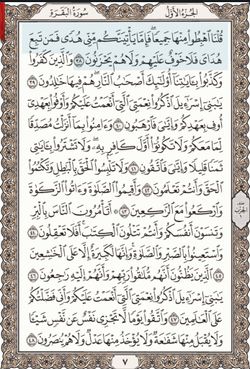 الجزء الأول
سورة البقرة
قُلْنَا اهْبِطُوا مِنْهَا جَمِيعًا فَإِمَّا يَأْتِيَنَّكُم مِّنِّي هُدًى فَمَن تَبِعَ
هُدَايَ فَلَا خَوْفٌ عَلَيْهِمْ وَلَا هُمْ يَحْزَنُونَ ٣٨ وَالَّذِينَ كَفَرُوا
وَكَذَّبُوا بِآيَاتِنَا أُولَٰئِكَ أَصْحَابُ النَّارِ هُمْ فِيهَا خَالِدُونَ ٣٩
يَا بَنِي إِسْرَائِيلَ اذْكُرُوا نِعْمَتِيَ الَّتِي أَنْعَمْتُ عَلَيْكُمْ وَأَوْفُوا بِعَهْدِي
أُوفِ بِعَهْدِكُمْ وَإِيَّايَ فَارْهَبُونِ ٤٠ وَآمِنُوا بِمَا أَنزَلْتُ مُصَدِّقًا
لِّمَا مَعَكُمْ وَلَا تَكُونُوا أَوَّلَ كَافِرٍ بِهِ وَلَا تَشْتَرُوا بِآيَاتِي
ثَمَنًا قَلِيلًا وَإِيَّايَ فَاتَّقُونِ ٤١ وَلَا تَلْبِسُوا الْحَقَّ بِالْبَاطِلِ وَتَكْتُمُوا
الْحَقَّ وَأَنتُمْ تَعْلَمُونَ ٤٢ وَأَقِيمُوا الصَّلَاةَ وَآتُوا الزَّكَاةَ
وَارْكَعُوا مَعَ الرَّاكِعِينَ ٤٣ أَتَأْمُرُونَ النَّاسَ بِالْبِرِّ
وَتَنسَوْنَ أَنفُسَكُمْ وَأَنتُمْ تَتْلُونَ الْكِتَابَ أَفَلَا تَعْقِلُونَ ٤٤
وَاسْتَعِينُوا بِالصَّبْرِ وَالصَّلَاةِ وَإِنَّهَا لَكَبِيرَةٌ إِلَّا عَلَى الْخَاشِعِينَ
٤٥ الَّذِينَ يَظُنُّونَ أَنَّهُم مُّلَاقُو رَبِّهِمْ وَأَنَّهُمْ إِلَيْهِ رَاجِعُونَ ٤٦
يَا بَنِي إِسْرَائِيلَ اذْكُرُوا نِعْمَتِيَ الَّتِي أَنْعَمْتُ عَلَيْكُمْ وَأَنِّي فَضَّلْتُكُمْ
عَلَى الْعَالَمِينَ ٤٧ وَاتَّقُوا يَوْمًا لَّا تَجْزِي نَفْسٌ عَن نَّفْسٍ شَيْئًا
وَلَا يُقْبَلُ مِنْهَا شَفَاعَةٌ وَلَا يُؤْخَذُ مِنْهَا عَدْلٌ وَلَا هُمْ يُنصَرُونَ ٤٨
٧